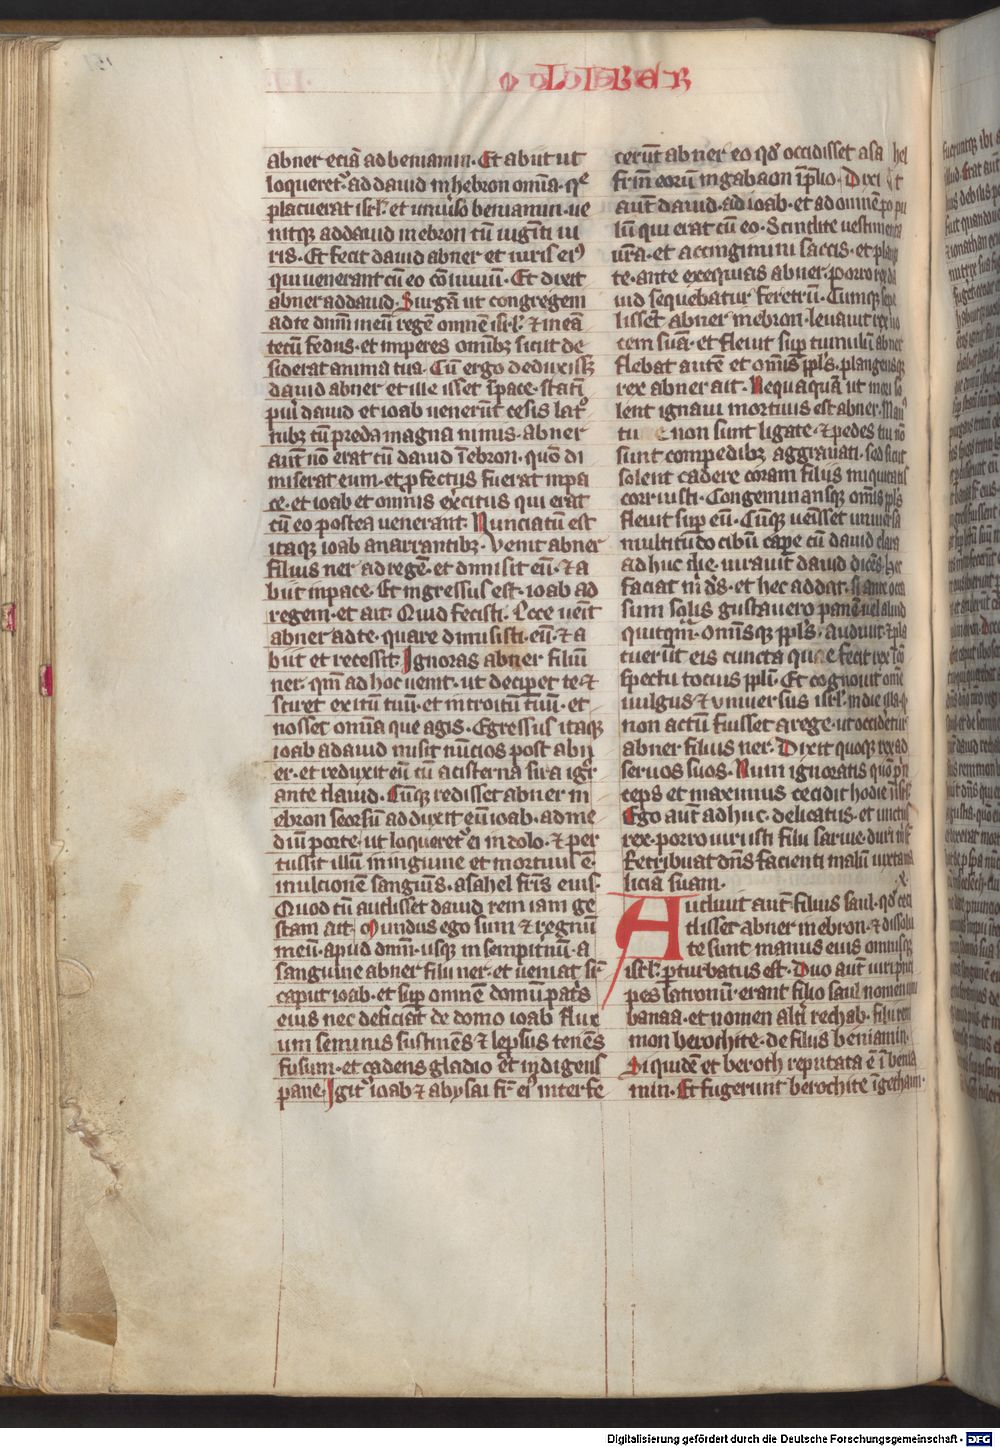 LIBER
abner eciā ad beniamin. Et abiit ut
loqueret᷑ ad dauid in hebron omīa. q̄
placuerat isrl̄. et uniuso beniamin. ue
nitq; ad dauid in ebron cū uiginti ui
ris. Et fecit dauid abner et uiris ei⁹
qui uenerant cū eo cōuiuiū. Et dixit
abner ad dauid. Surgā ut congregem
ad te dnm̄ meū regē omnē isrl̄. ⁊ ineā
tecū fedus. et imperes omib; sicut de
siderat anima tua. Cū ergo deduxiss;
dauid abner et ille isset ī pace. statī
pui dauid et ioab uenerūt cesis lat᷑
nib; cū preda magna nimis. abner
aut̄ nō erat cū dauid ī ebron. quō di
miserat eum. et pfectus fuerat in pa
ce. et ioab et omnis exercitus qui erāt
cū eo postea uenerant. Nunciatū est
itaq; ioab a narrantib;. Venit abner
filius ner ad regē. et dimisit eū. ⁊ a
biit in pace. Et ingressus est. ioab ad
regem. et ait. Quid fecisti. Ecce uēit
abner ad te. quare dimisisti. eū. ⁊ a
biit et recessit. Ignoras abner filiū
ner. qm̄ ad hoc uenit. ut deciper& te. ⁊
sciret exitū tuū. et introitū tuū. et
nosset omīa que agis. Egressus itaq;
ioab a dauid misit nūcios post abn
er. et reduxit eū cū a cisterna sira igr̄
ante dauid. Cūq; redisset abner in
ebron seorsū adduxit eū ioab. ad me
diū porte. ut loqueret᷑ ei in dolo. ⁊ per
cussit illū in inguine et mortuus ē.
in ulcionē sanguīs. asahel fr̄is eius.
Quod cū audisset dauid rem iam ge
stam ait. Mundus ego sum ⁊ regnū
meū. apud dnm̄. usq; in sempitnū. a
sanguine abner filii ner. et ueniat sr̄
caput ioab. et sup omnē domū patis
eius nec deficiat de domo ioab flux
um seminis sustinēs ⁊ lepsus tenēs
fusum. et cadens gladio et indigens
pane. Igit᷑ ioab ⁊ abysai fr̄ ei⁹ interfe
cerūt abner eo qd̄ occidisset asahel
fr̄m eorū in gabaon ī plio. Dixit
aut̄ dauid. ad ioab. et ad omnē popu
lū qui erat cū eo. Scindite uestimenta
ur̄a. et accingimini saccis. et plang
te. ante exequias abner. porro rex da
uid sequebatur feretrū. Cumq; sepe
lissēt abner in ebron. leuauit rex uo
cem suā. et fleuit sup tumulū abner
flebat autē et omīs ppl̄s. plangensq;
rex abner ait. Nequaquā ut mori so
lent ignaui mortuus est abner. Man⁹
tue non sunt ligate. ⁊ pedes tui nō
sunt compedib; aggrauati. sed sicut
solent cadere coram filiis iniquitatis
corruisti. Congeminansq; omīs ppl̄s
fleuit sup eū. Cūq; uēisset uniuersa
multitudo cibū cape cū dauid clara
adhuc die. iurauit dauid dicēs. hec
faciat m̄ ds̄. et hec addat. si ante occa
sum solis gustauero panē uel aliud
quitqm̄. Omīsq; ppl̄s. audiuit. ⁊ pla
cuerūt eis cuncta que fecit rex ī cō
spectu tocius ppl̄i. Et cognouit omē
uulgus ⁊ vniuersus isrl̄. in die illa. q
non actū fuisset a rege. ut occidetur
abner filius ner. Dixit quoq; rex ad
seruos suos. Num ignoratis quō pn̄
ceps et maximus cecidit hodie ī isrl̄
Ego aut̄ adhuc. delicatus. et unctus
rex. porro uiri isti filii saruie. duri m̄ st̄
Retribuat dns̄ facienti malū iuxta ma
liciā suam.
Audiuit aut̄ filius saul. qd̄ ceci
disset abner in ebron. ⁊ dissolu
te sunt manus eius omnisq;
isrl̄. pturbatus est. Duo aut̄ uiri prici
pes latronū. erant filio saul nomen uni
banaa. et nomen altī rechab. filii rem
mon berochite. de filiis beniamin.
Siquidē et beroth reputata ē ī benia
min. Et fugerunt berochite ī gethaim.
Digitalisierung gefördert durch die Deutsche Forschungsgemeinschaft - DFG